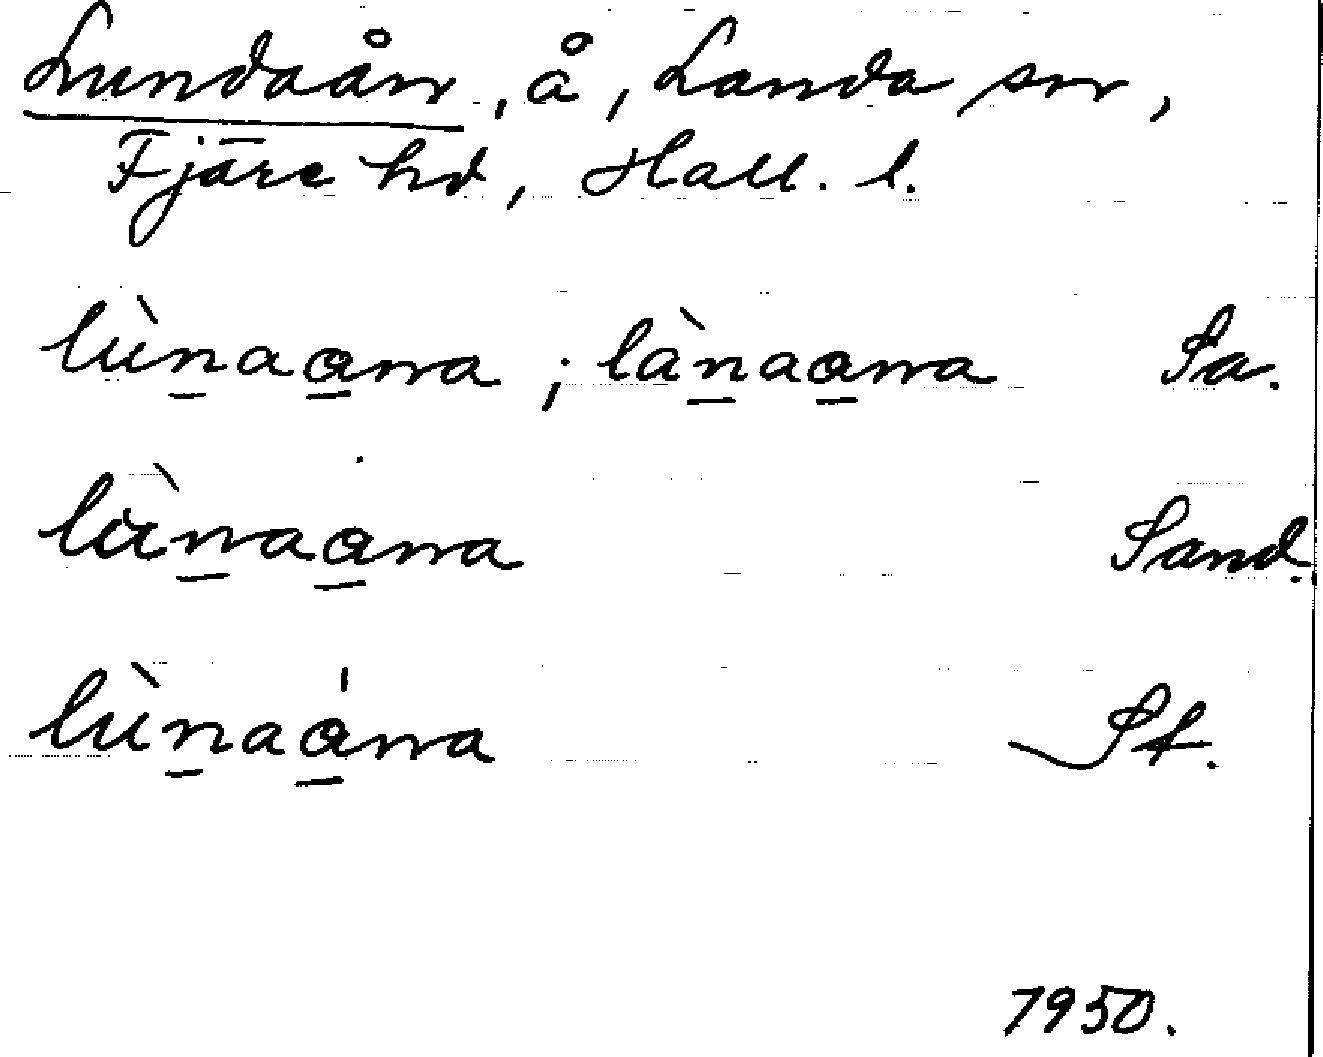 Lundaån, å, Landa sn,
Fjäre hd, Hall. l.
lùnaana ; lànaana Sa.
lùnaana Sand.
lùnaána St.
1950.